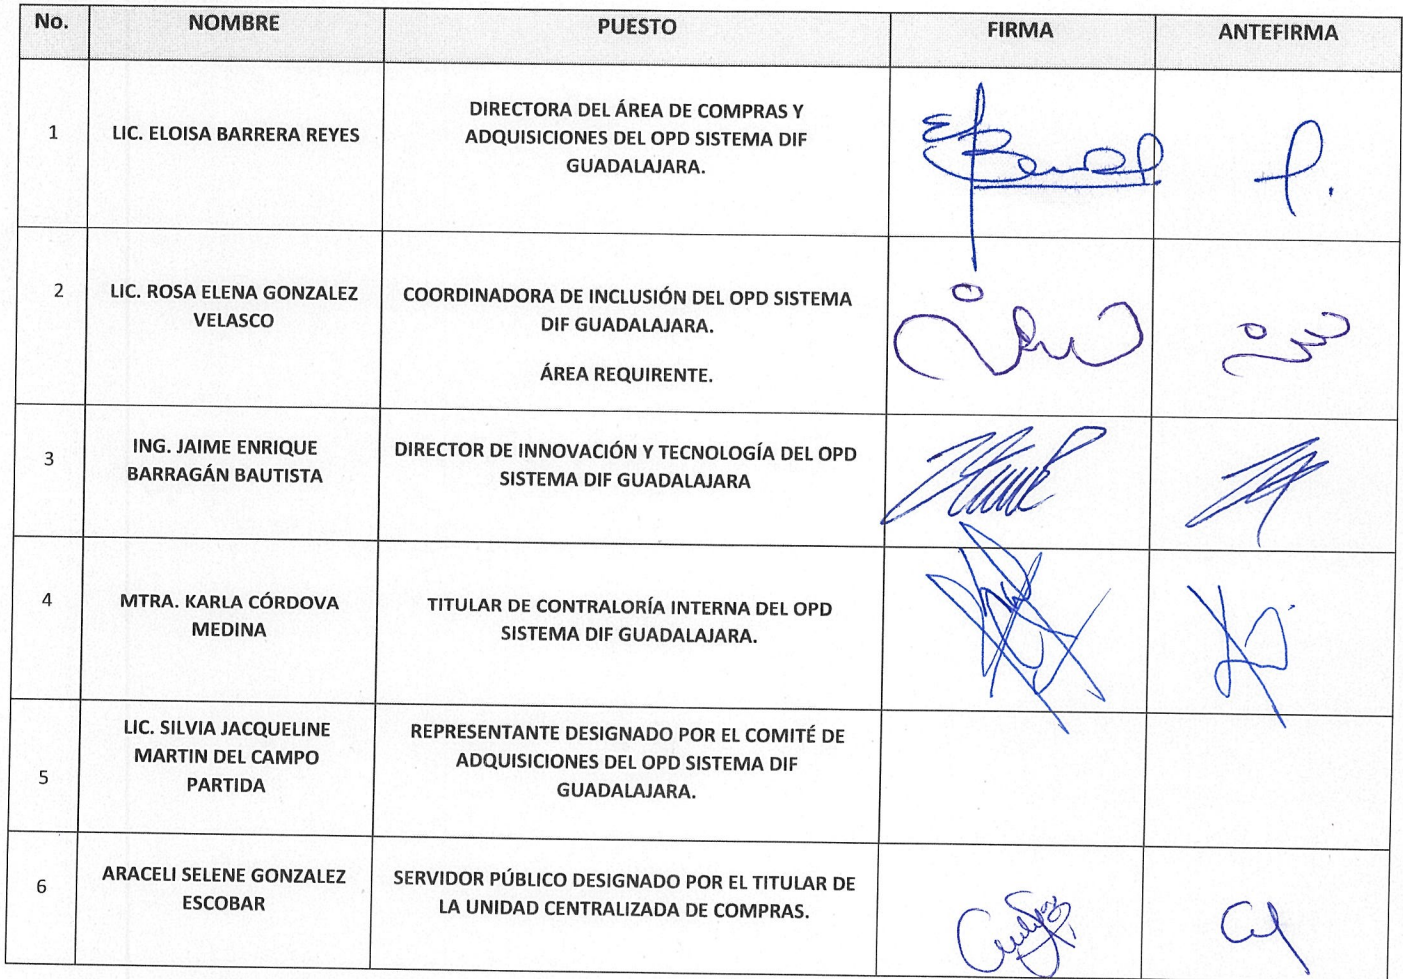 No. NOMBRE PUESTO FIRMA ANTEFIRMA
1
LIC. ELOISA BARRERA REYES
DIRECTORA DEL ÁREA DE COMPRAS Y
ADQUISICIONES DEL OPD SISTEMA DIF
GUADALAJARA.
2
LIC. ROSA ELENA GONZALEZ
VELASCO
COORDINADORA DE INCLUSIÓN DEL OPD SISTEMA
DIF GUADALAJARA.
ÁREA REQUIRENTE.
3
ING. JAIME ENRIQUE
BARRAGÁN BAUTISTA
DIRECTOR DE INNOVACIÓN Y TECNOLOGÍA DEL OPD
SISTEMA DIF GUADALAJARA
4
MTRA. KARLA CÓRDOVA
MEDINA
TITULAR DE CONTRALORÍA INTERNA DEL OPD
SISTEMA DIF GUADALAJARA.
5
LIC. SILVIA JACQUELINE
MARTIN DEL CAMPO
PARTIDA
REPRESENTANTE DESIGNADO POR EL COMITÉ DE
ADQUISICIONES DEL OPD SISTEMA DIF
GUADALAJARA.
6
ARACELI SELENE GONZALEZ
ESCOBAR
SERVIDOR PÚBLICO DESIGNADO POR EL TITULAR DE
LA UNIDAD CENTRALIZADA DE COMPRAS.